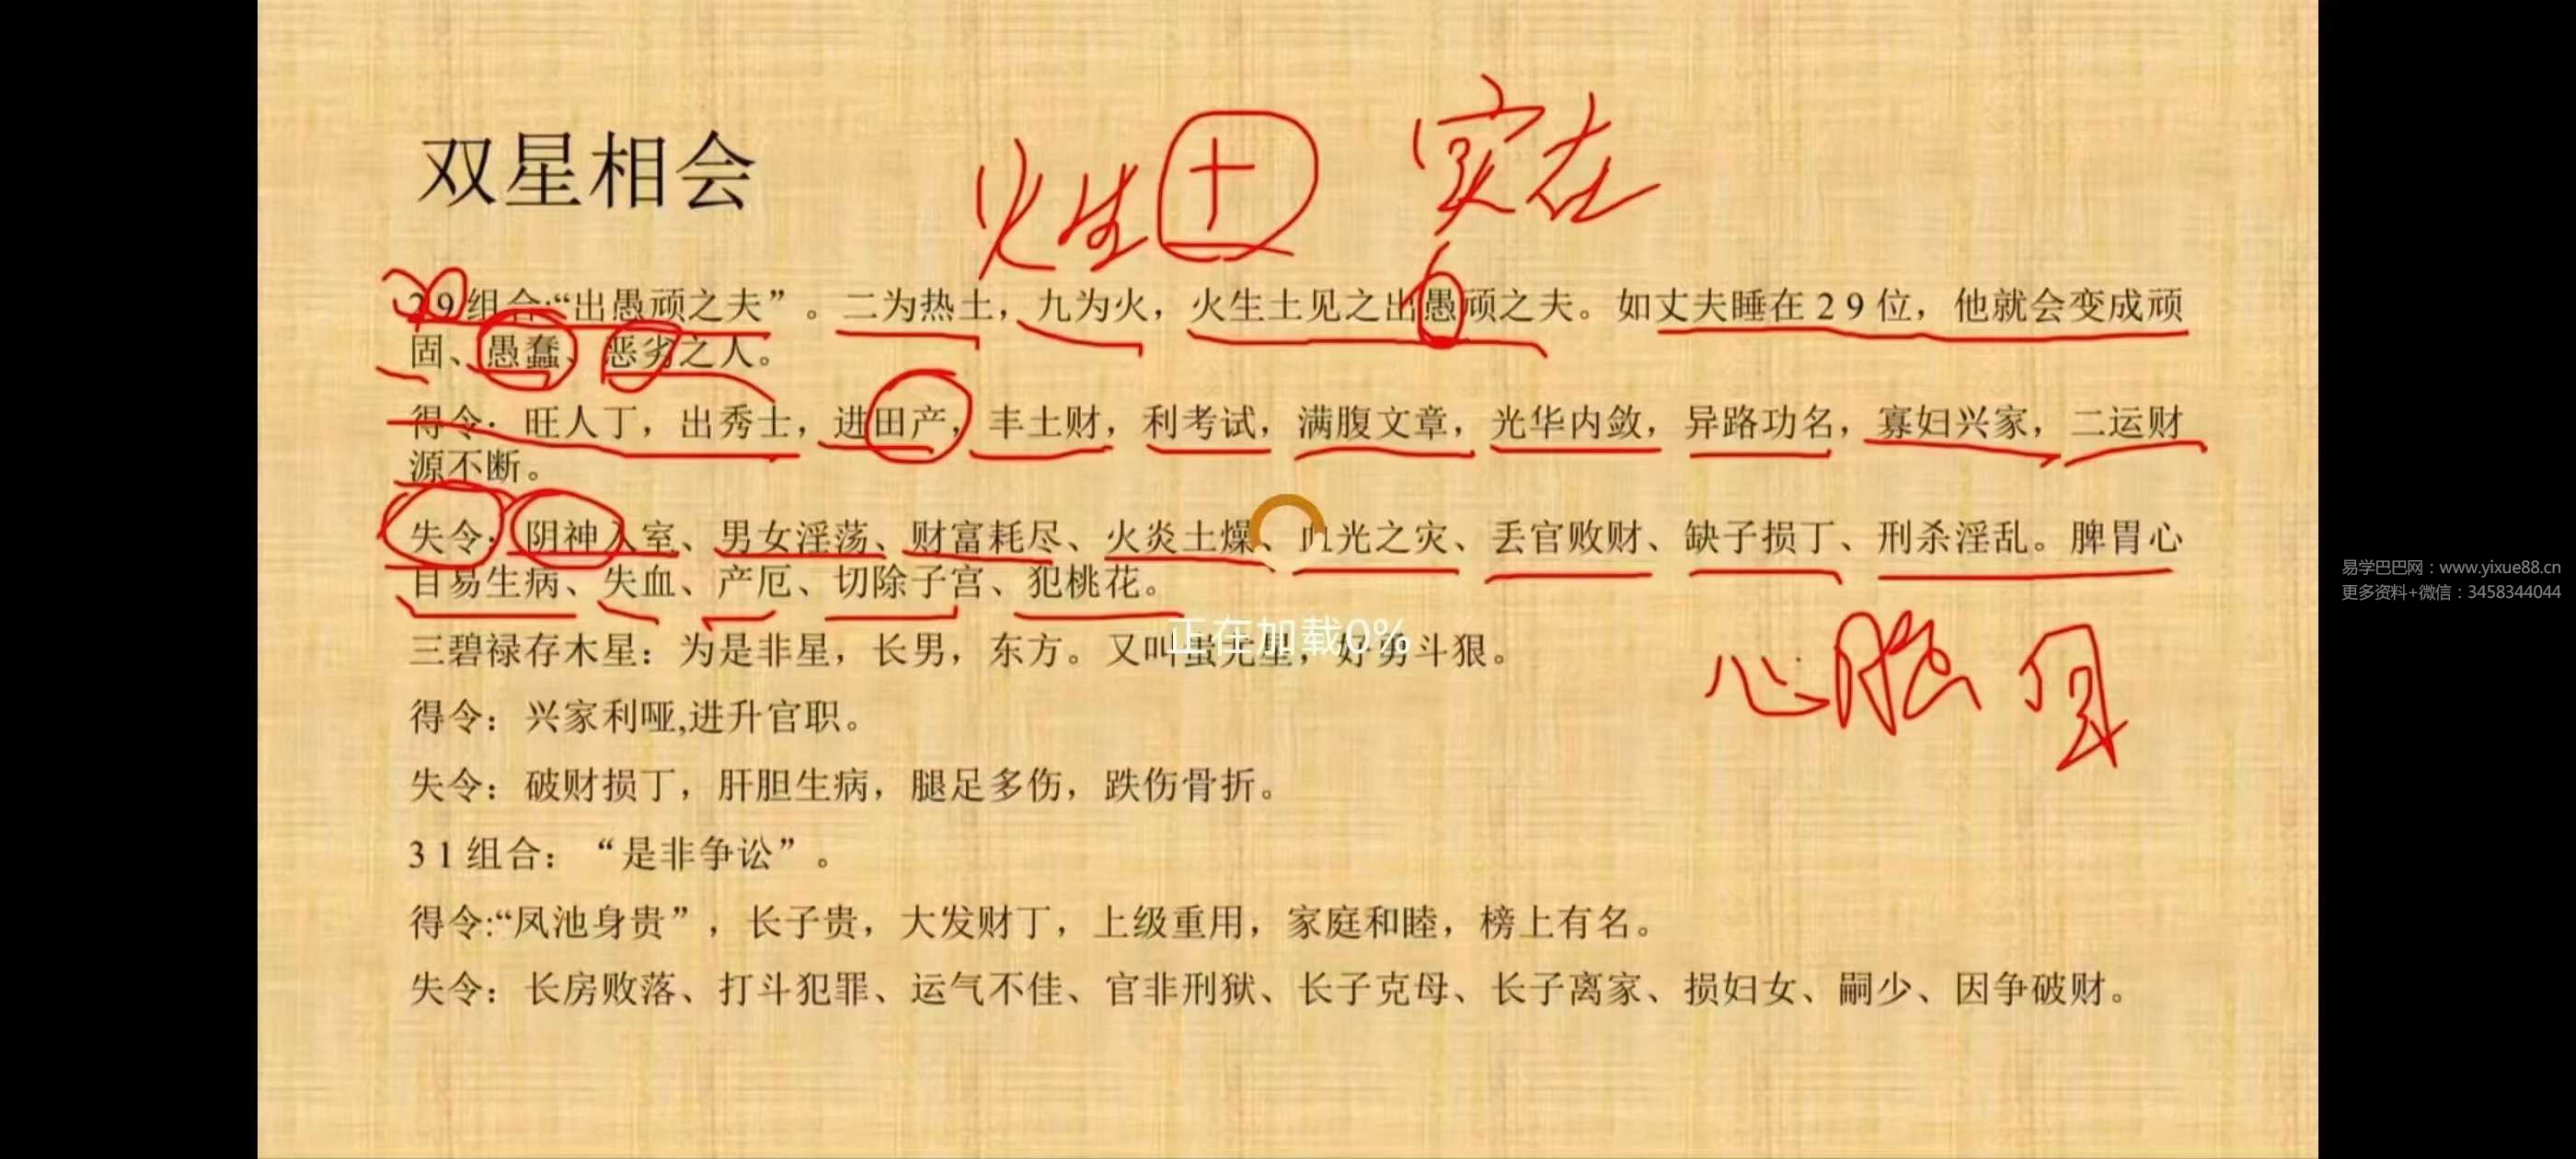 双星相会
火生土 实在
29组合:“出愚顽之夫”。二为热土，九为火，火生土见之出愚顽之夫。如丈夫睡在29位，他就会变成顽
固、愚蠢、恶劣之人。
得令：旺人丁，出秀士，进田产，丰土财，利考试，满腹文章，光华内敛，异路功名，寡妇兴家，二运财
源不断。
失令：阴神入室、男女淫荡、财富耗尽、火炎土燥、血光之灾、丢官败财、缺子损丁、刑杀淫乱。脾胃心
目易生病、失血、产厄、切除子宫、犯桃花。
正在加载0%
三碧禄存木星：为是非星，长男，东方。又叫蚩尤星，好勇斗狠。
心脑
得令：兴家利哑,进升官职。
失令：破财损丁，肝胆生病，腿足多伤，跌伤骨折。
31组合：“是非争讼”。
得令:“凤池身贵”，长子贵，大发财丁，上级重用，家庭和睦，榜上有名。
失令：长房败落、打斗犯罪、运气不佳、官非刑狱、长子克母、长子离家、损妇女、嗣少、因争破财。
易学巴巴网：www.yixue88.cn
更多资料+微信：3458344044